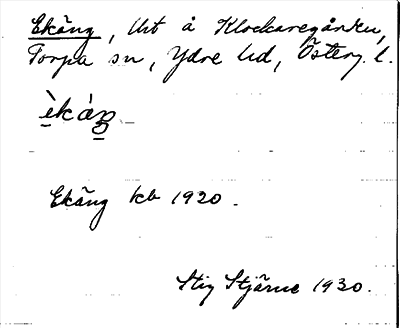 Ekäng, Ut å Klockaregården,
Torpa sn, Ydre hd, Österg. l.
èkáŋ
Ekäng kb 1920.
Stig Stjärne 1930.